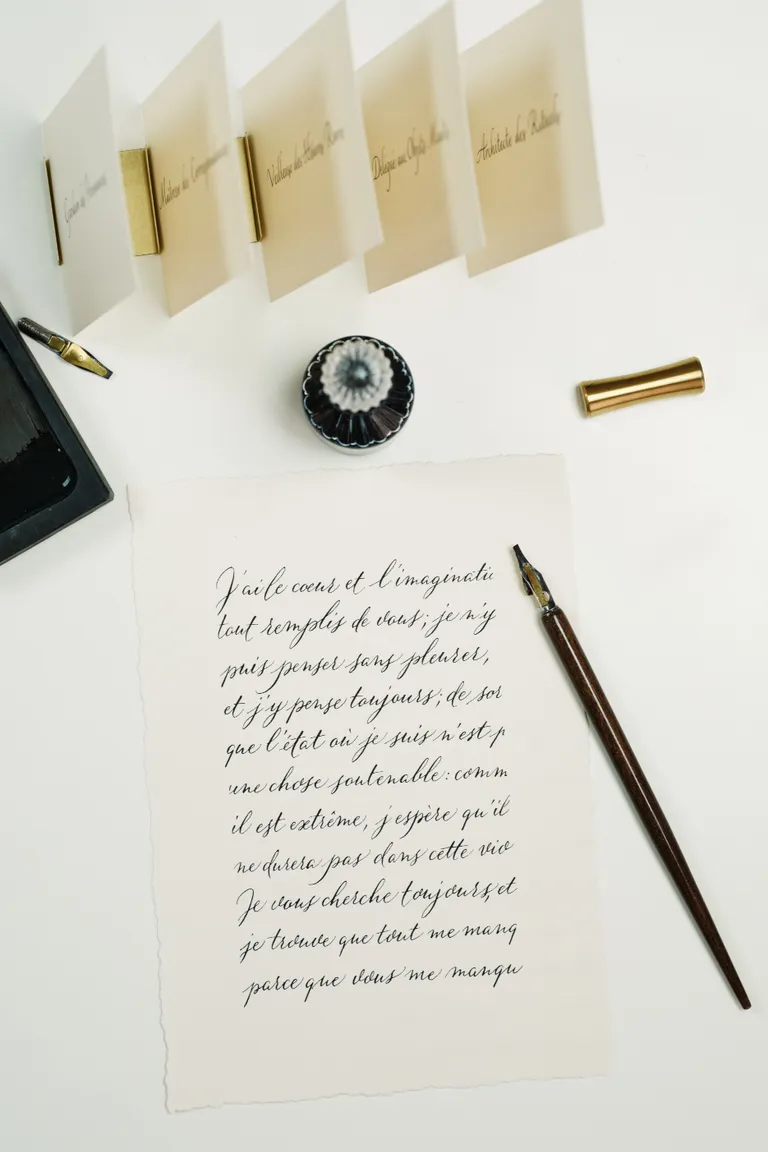 Veilleuse des Heures
Délégué aux Objets
Architecte des
J'ai le coeur et l'imaginatio
tout remplis de vous; je n'y
puis penser sans pleurer,
et j'y pense toujours; de sor
que l'état où je suis n'est p
une chose soutenable: comm
il est extrême, j'espère qu'il
ne durera pas dans cette vio
Je vous cherche toujours, et
je trouve que tout me manq
parce que vous me manqu